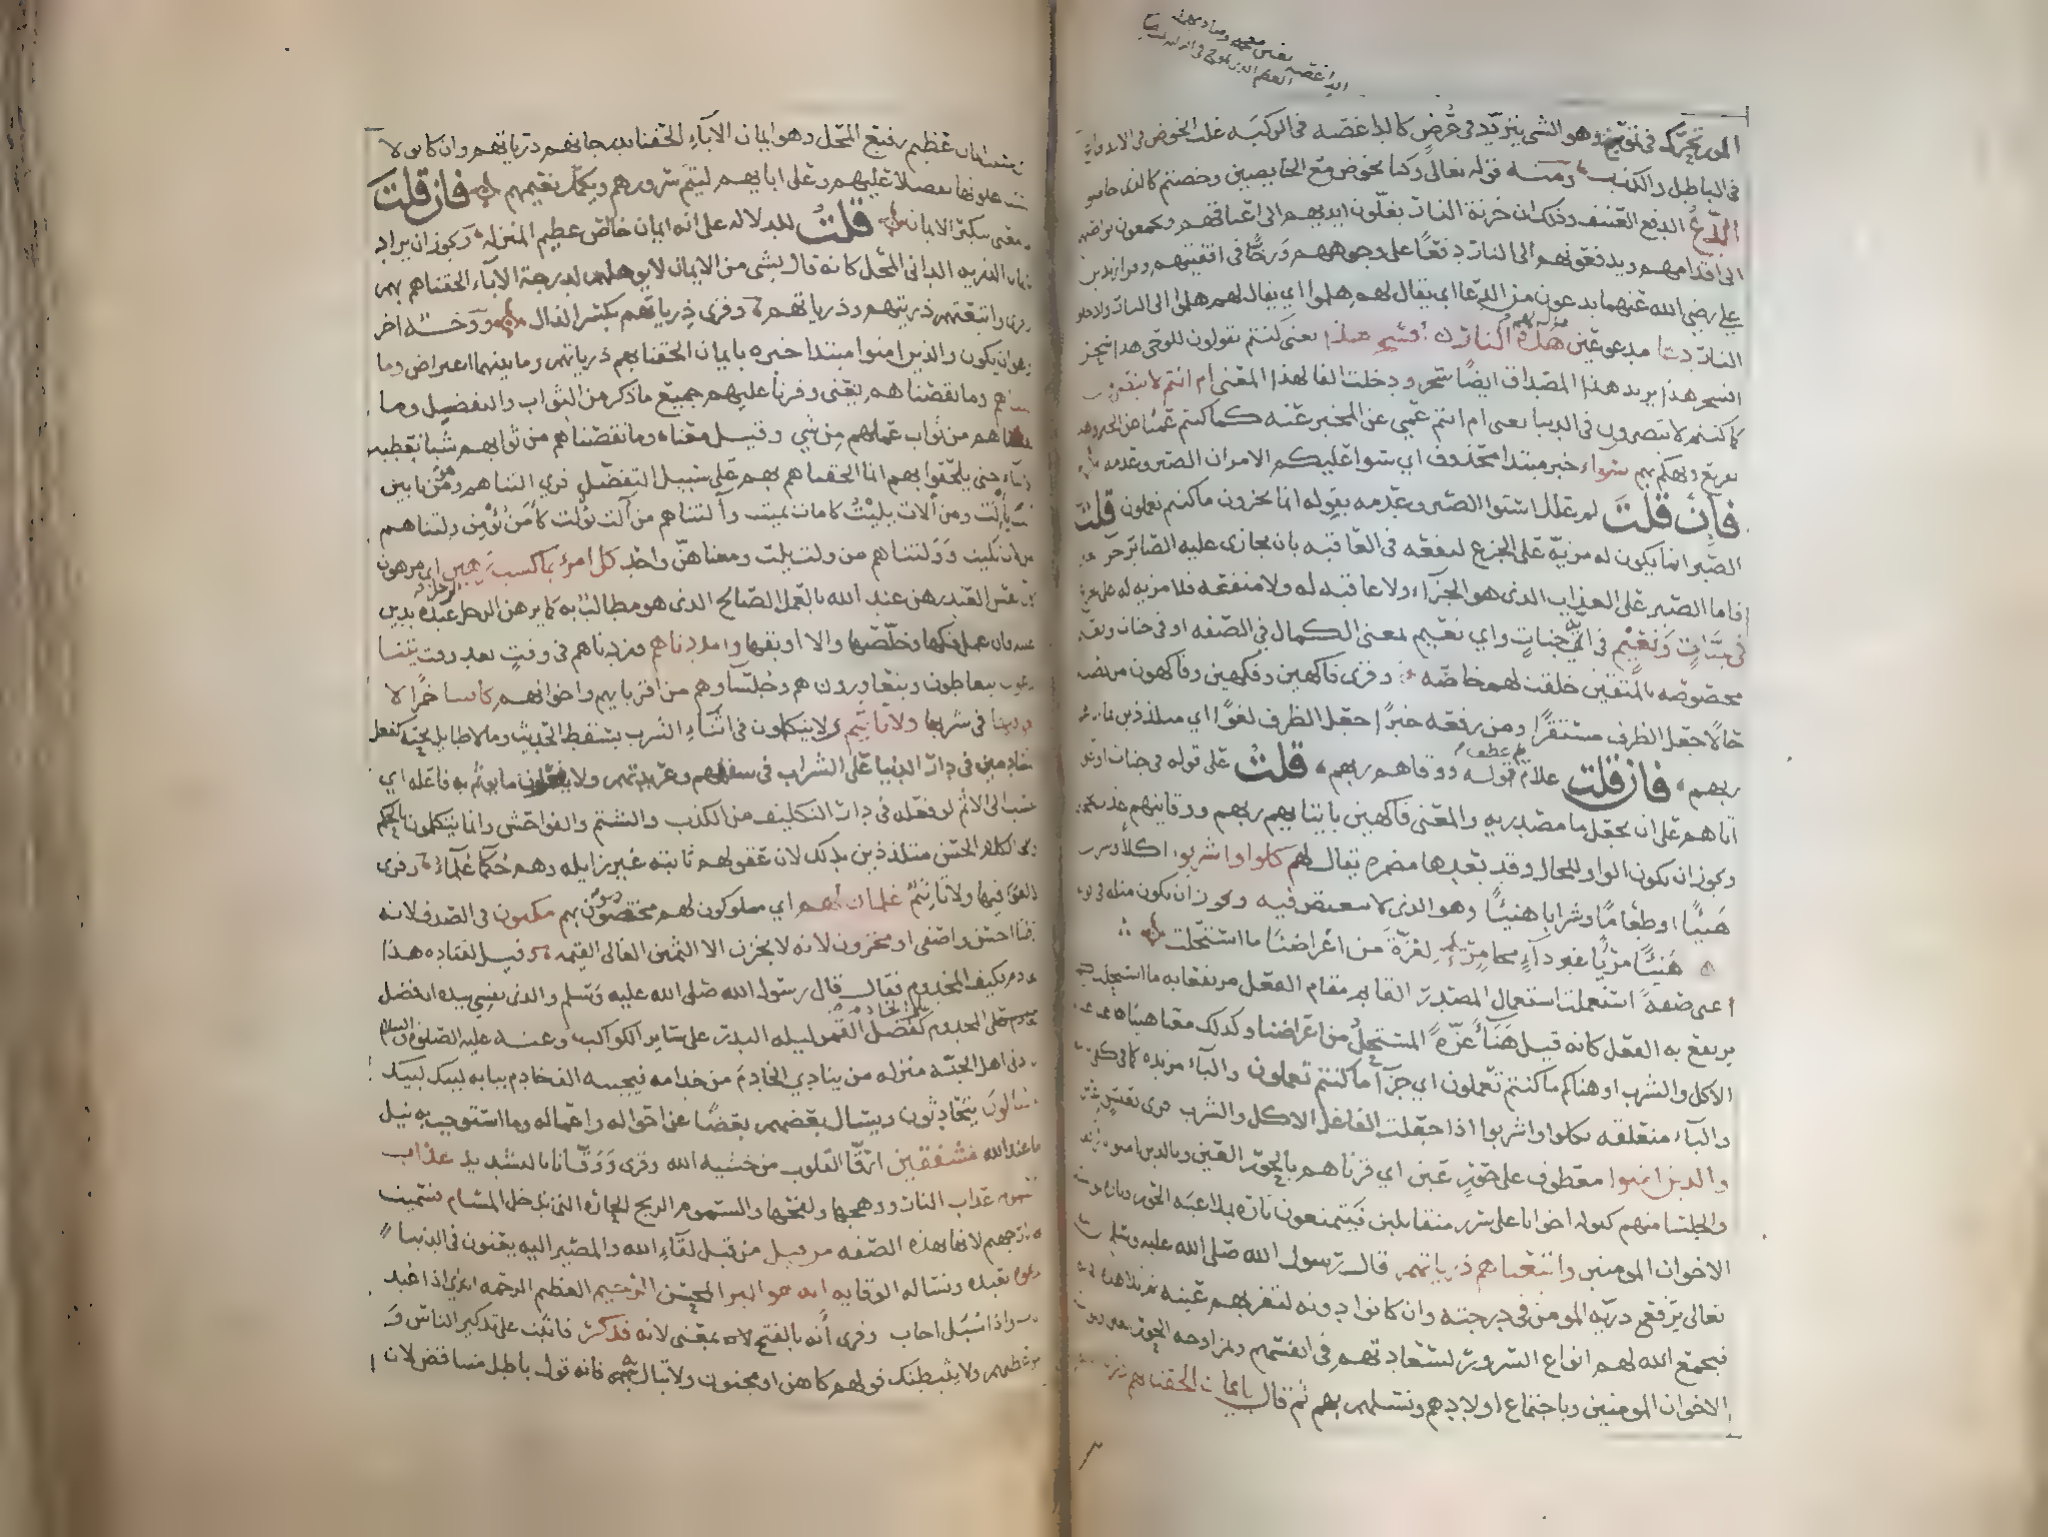 الداغصة بغين معجمة وصاد مهملة
العظم الذي يموج في
المور تحرك في تموج وهو الشي يتردد في عرض كالداغصة في الركبه غلب الخوض في الاندفاع
في الباطل والكذب ومنه قوله تعالى وكنا نخوض مع الخايضين وخضتم كالذي خاضوا
الدع الدفع العنيف وذلك ان خزنة النار يغلون ايديهم الى اعناقهم ويجمعون نواصيهم
الى اقدامهم ويدفعونهم الى النار دفعا على وجوههم وزخا في اقفيتهم وقرا زيد بن
علي رضي الله عنهما يدعون من الدعا اي يقال لهم هلموا الى النار وادخلوا
النار دعا مدعوعين هذه النار افسحر هذا يعني كنتم تقولون للوحي هذا سحر
افسحر هذا يريد هذا المصداق ايضا سحر ودخلت الفا لهذا المعنى ام انتم لا تبصرون
كما كنتم لا تبصرون في الدنيا يعني ام انتم عمي عن المخبر عنه كما كنتم عميا عن الخبر وهذا
تقريع وتهكم بهم سواء خبر مبتدا محذوف اي سوا عليكم الامران الصبر وعدمه
فان قلت لم علل استوا الصبر وعدمه بقوله انما تجزون ما كنتم تعملون قلت
الصبر انما يكون له مزية على الجزع لنفعه في العاقبه بان يجازى عليه الصابر جزا
فاما الصبر على العذاب الذي هو الجزاء ولا عاقبه له ولا منفعه فلا مزيه له على الجزع
في جنات ونعيم في اي جنات واي نعيم بمعنى الكمال في الصفه او في جنات ونعيم
مخصوصه بالمتقين خلقت لهم خاصه وقرى فاكهين وفكهين وفاكهون من نصبه
حالا جعل الظرف مستقرا ومن رفعه خبرا جعل الظرف لغوا اي متلذذين بما
ربهم فان قلت علام عطف قوله ووقاهم ربهم قلت على قوله في جنات او على
اتاهم على ان يجعل ما مصدريه والمعنى فاكهين بايتايهم ربهم ووقايتهم عذاب الجحيم
ويجوز ان يكون الواو للحال وقد بعدها مضمره يقال لهم كلوا واشربوا اكلا وشربا
هنيئا او طعاما وشرابا هنيئا وهو الذي لا تنغيص فيه ويجوز ان يكون مثله في قوله
هنيئا مريا غير داء مخامر لعزة من اعراضنا ما استحلت
اعني صفة استعملت استعمال المصدر القايم مقام الفعل مرتفعا به ما استحلت
يرتفع به الفعل كانه قيل هنأ عزة المستحل من اعراضنا وكذلك معنا هنيئا ههنا
الاكل والشرب او هناكم ما كنتم تعملون اي جزآ ما كنتم تعملون والبآء مزيده كما في كفى
والبآء متعلقه بكلوا واشربوا اذا جعلت الفاعل الاكل والشرب وقرى بعيس عين
والذين امنوا معطوف على حور عين اي قرناهم بالحور العين وبالذين امنوا
والجلسا منهم كقوله اخوانا على سرر متقابلين فيتمتعون تاره بملاعبة الحور وتاره
الاخوان المومنين واتبعناهم ذرياتهم قال رسول الله صلى الله عليه وسلم
تعالى يرفع ذرية المومن في درجته وان كانوا دونه لتقر بهم عينه ثم تلا هذه
فيجمع الله لهم انواع السرور بسعادتهم في انفسهم وبمزاوجه الحور
الاخوان المومنين وباجتماع اولادهم ونسلهم بهم ثم قال بايمان الحقنا بهم
بسبب ايمان عظيم رفيع المحل وهو ايمان الآباء الحقنا بدرجاتهم ذرياتهم وان كانوا لا
يستاهلونها تفضلا عليهم وعلى ابايهم ليتم سرورهم ويكمل نعيمهم فان قلت
ما معنى تنكير الايمان قلت للدلاله على انه ايمان خاص عظيم المنزله ويجوز ان يراد
ايمان الذريه الداني المحل كانه قال بشي من الايمان لا يوهلهم لدرجة الآباء الحقناهم بهم
وقرى واتبعتهم ذريتهم وذرياتهم وقرى ذرياتهم بكسر الذال ووجه اخر
وهو ان يكون والذين امنوا مبتدا خبره بايمان الحقنا بهم ذرياتهم وما بينهما اعتراض وما
التناهم وما نقصناهم يعني وفرنا عليهم جميع ما ذكر من الثواب والتفضيل وما
نقصناهم من ثواب عملهم من شي وقيل معناه وما نقصناهم من ثوابهم شيا نعطيه
الابناء حتى يلحقوا بهم انما الحقناهم بهم على سبيل التفضل قرى التناهم وهو من بابين
من ألت يألت ومن ألات يليت كامات يميت وآلتناهم من آلت يؤلت كآمن يؤمن ولتناهم
من لات يليت وولتناهم من ولت يلت ومعناهن واحد كل امرئ بما كسب رهين اي مرهون
كان نفس العبد رهن عند الله بالعمل الصالح الذي هو مطالب به كما يرهن الرجل عبده بدين
عليه فان عمل فكها وخلصها والا اوبقها وامددناهم وزدناهم في وقت بعد وقت يتنا
زعون يتعاطون ويتعاورون هم وجلسآوهم من اقربايهم واخوانهم كاسا خمرا لا
لغو فيها في شربها ولا تاثيم اي لا يتكلمون في اثناء الشرب بسقط الحديث وما لا طايل تحته كفعل
المتنادمين في دار الدنيا على الشراب في سفههم وعربدتهم ولا يفعلون ما يوثم به فاعله اي
ينسب الى الاثم لو فعله في دار التكليف من الكذب والشتم والفواحش وانما يتكلمون بالحكم
والكلام الحسن متلذذين بذلك لان عقولهم ثابته غير زايله وهم حكما علماء وقرى
لا لغو فيها ولا تاثيم غلمان لهم اي مملوكون لهم مخصوصون بهم مكنون في الصدف لانه
رطبا احسن واصفى او مخزون لانه لا يخزن الا الثمين الغالي القيمه وقيل لقتاده هذا
الخادم فكيف المخدوم فقال قال رسول الله صلى الله عليه وسلم والذي نفسي بيده ان فضل
المخدوم على الخادم كفضل القمر ليله البدر على ساير الكواكب وعنه عليه الصلوة والسلام
ان ادنى اهل الجنه منزله من ينادي الخادم من خدامه فيجيبه الف خادم ببابه لبيك لبيك
يتسالون يتحادثون ويسال بعضهم بعضا عن احواله واعماله وما استوجب به نيل
ما عند الله مشفقين ارقا القلوب من خشيه الله وقرى ووقانا بالتشديد عذاب
السموم عذاب النار ووهجها ولفحها والسموم الريح الحاره التي تدخل المسام فسميت
بها نار جهنم لانها بهذه الصفه من قبل من قبل لقاء الله والمصير اليه يعنون في الدنيا
ندعوه نعبده ونساله الوقايه انه هو البر المحسن الرحيم العظيم الرحمه الذي اذا عبد
اثاب واذا سيل اجاب وقرى أنه بالفتح بمعنى لانه فذكر فاثبت على تذكير الناس و
موعظتهم ولا يثبطنك قولهم كاهن او مجنون ولا تبال به فانه قول باطل متناقض لان